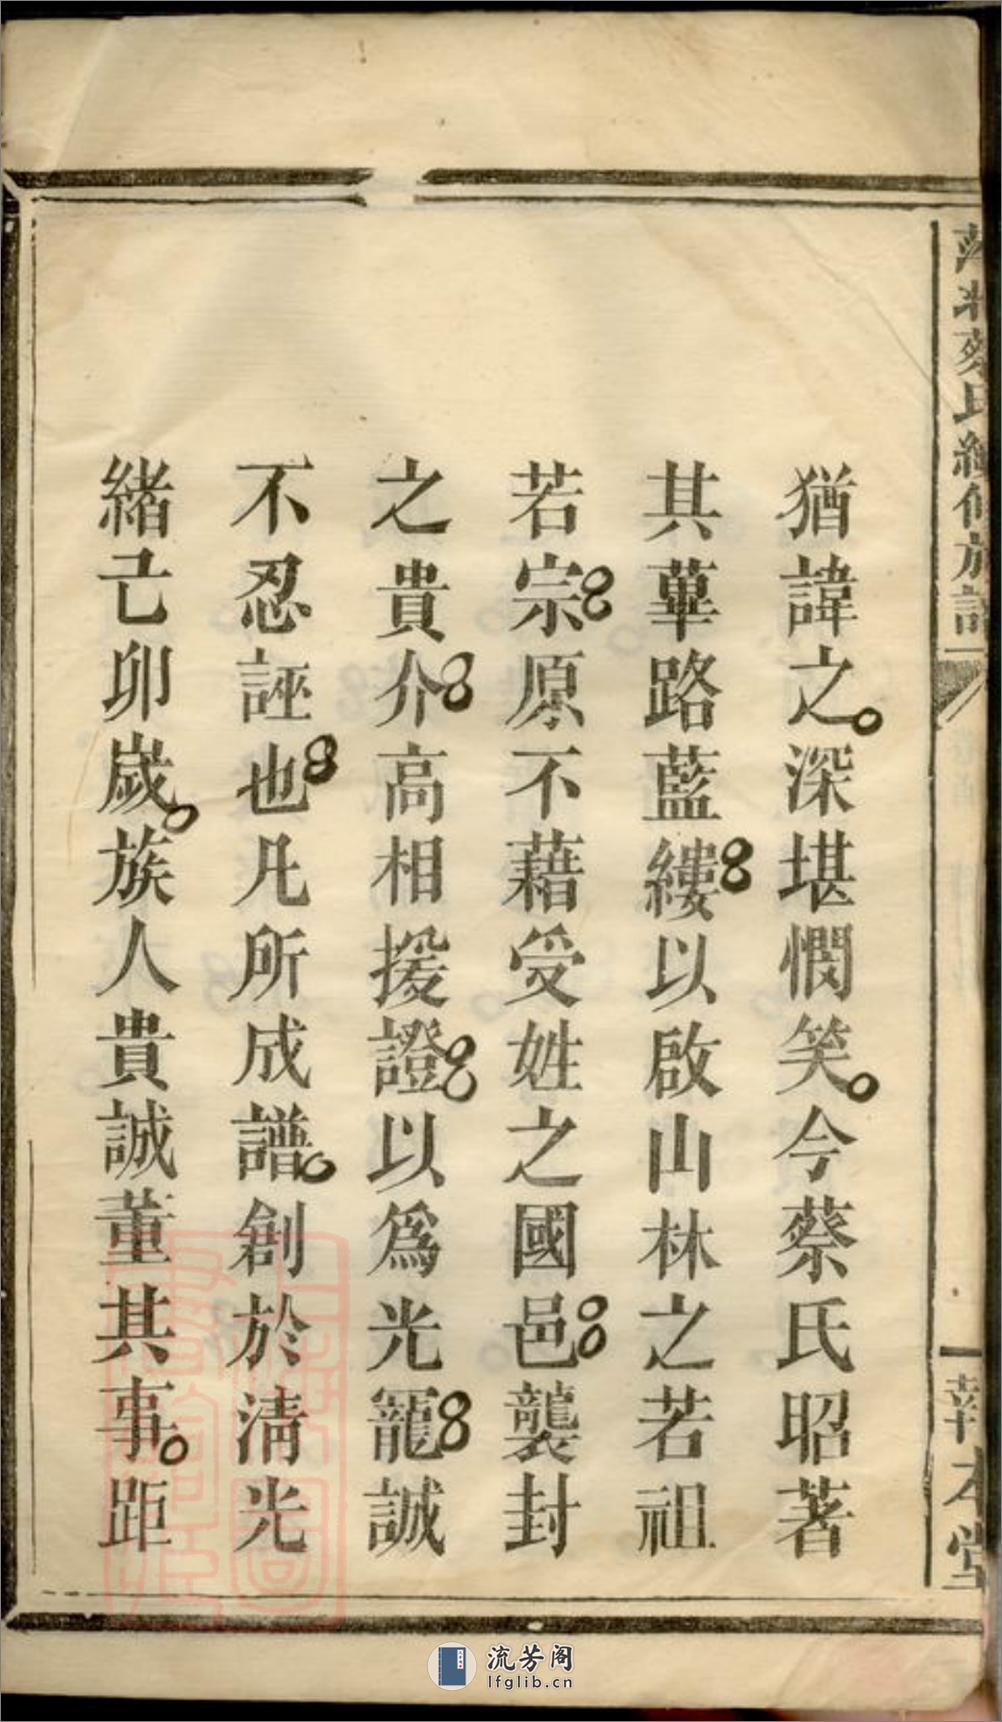 蔡氏續修族譜
一
報本堂
猶諱之。深堪憫笑。今蔡氏昭著
其蓽路藍縷以啟山林之若祖
若宗原不藉受姓之國邑襲封
之貴介高相援證以爲光寵誠
不忍誣也凡所成譜。創於清光
緒己卯歲。族人貴誠董其事。距
流芳阁
lfglib.cn